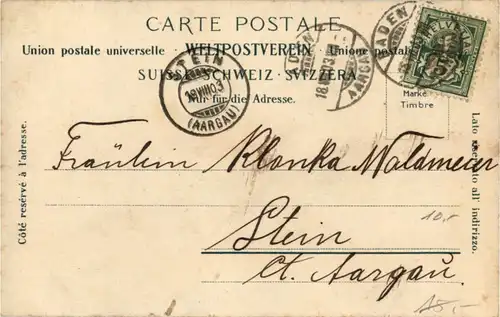 CARTE POSTALE
Union postale universelle - WELTPOSTVEREIN - Unione postale
SUISSE. SCHWEIZ. SVIZZERA.
Nur für die Adresse.
STEIN
18 VIII 03
(AARGAU)
BADEN
18.VIII.03
AARGAU
BADEN
5
Marke.
Timbre
Côté reservé à l'adresse.
Lato all' indirizzo.
Fräulein Klonka Waldmeier
Stein
Ct. Aargau.
10.-
15.-